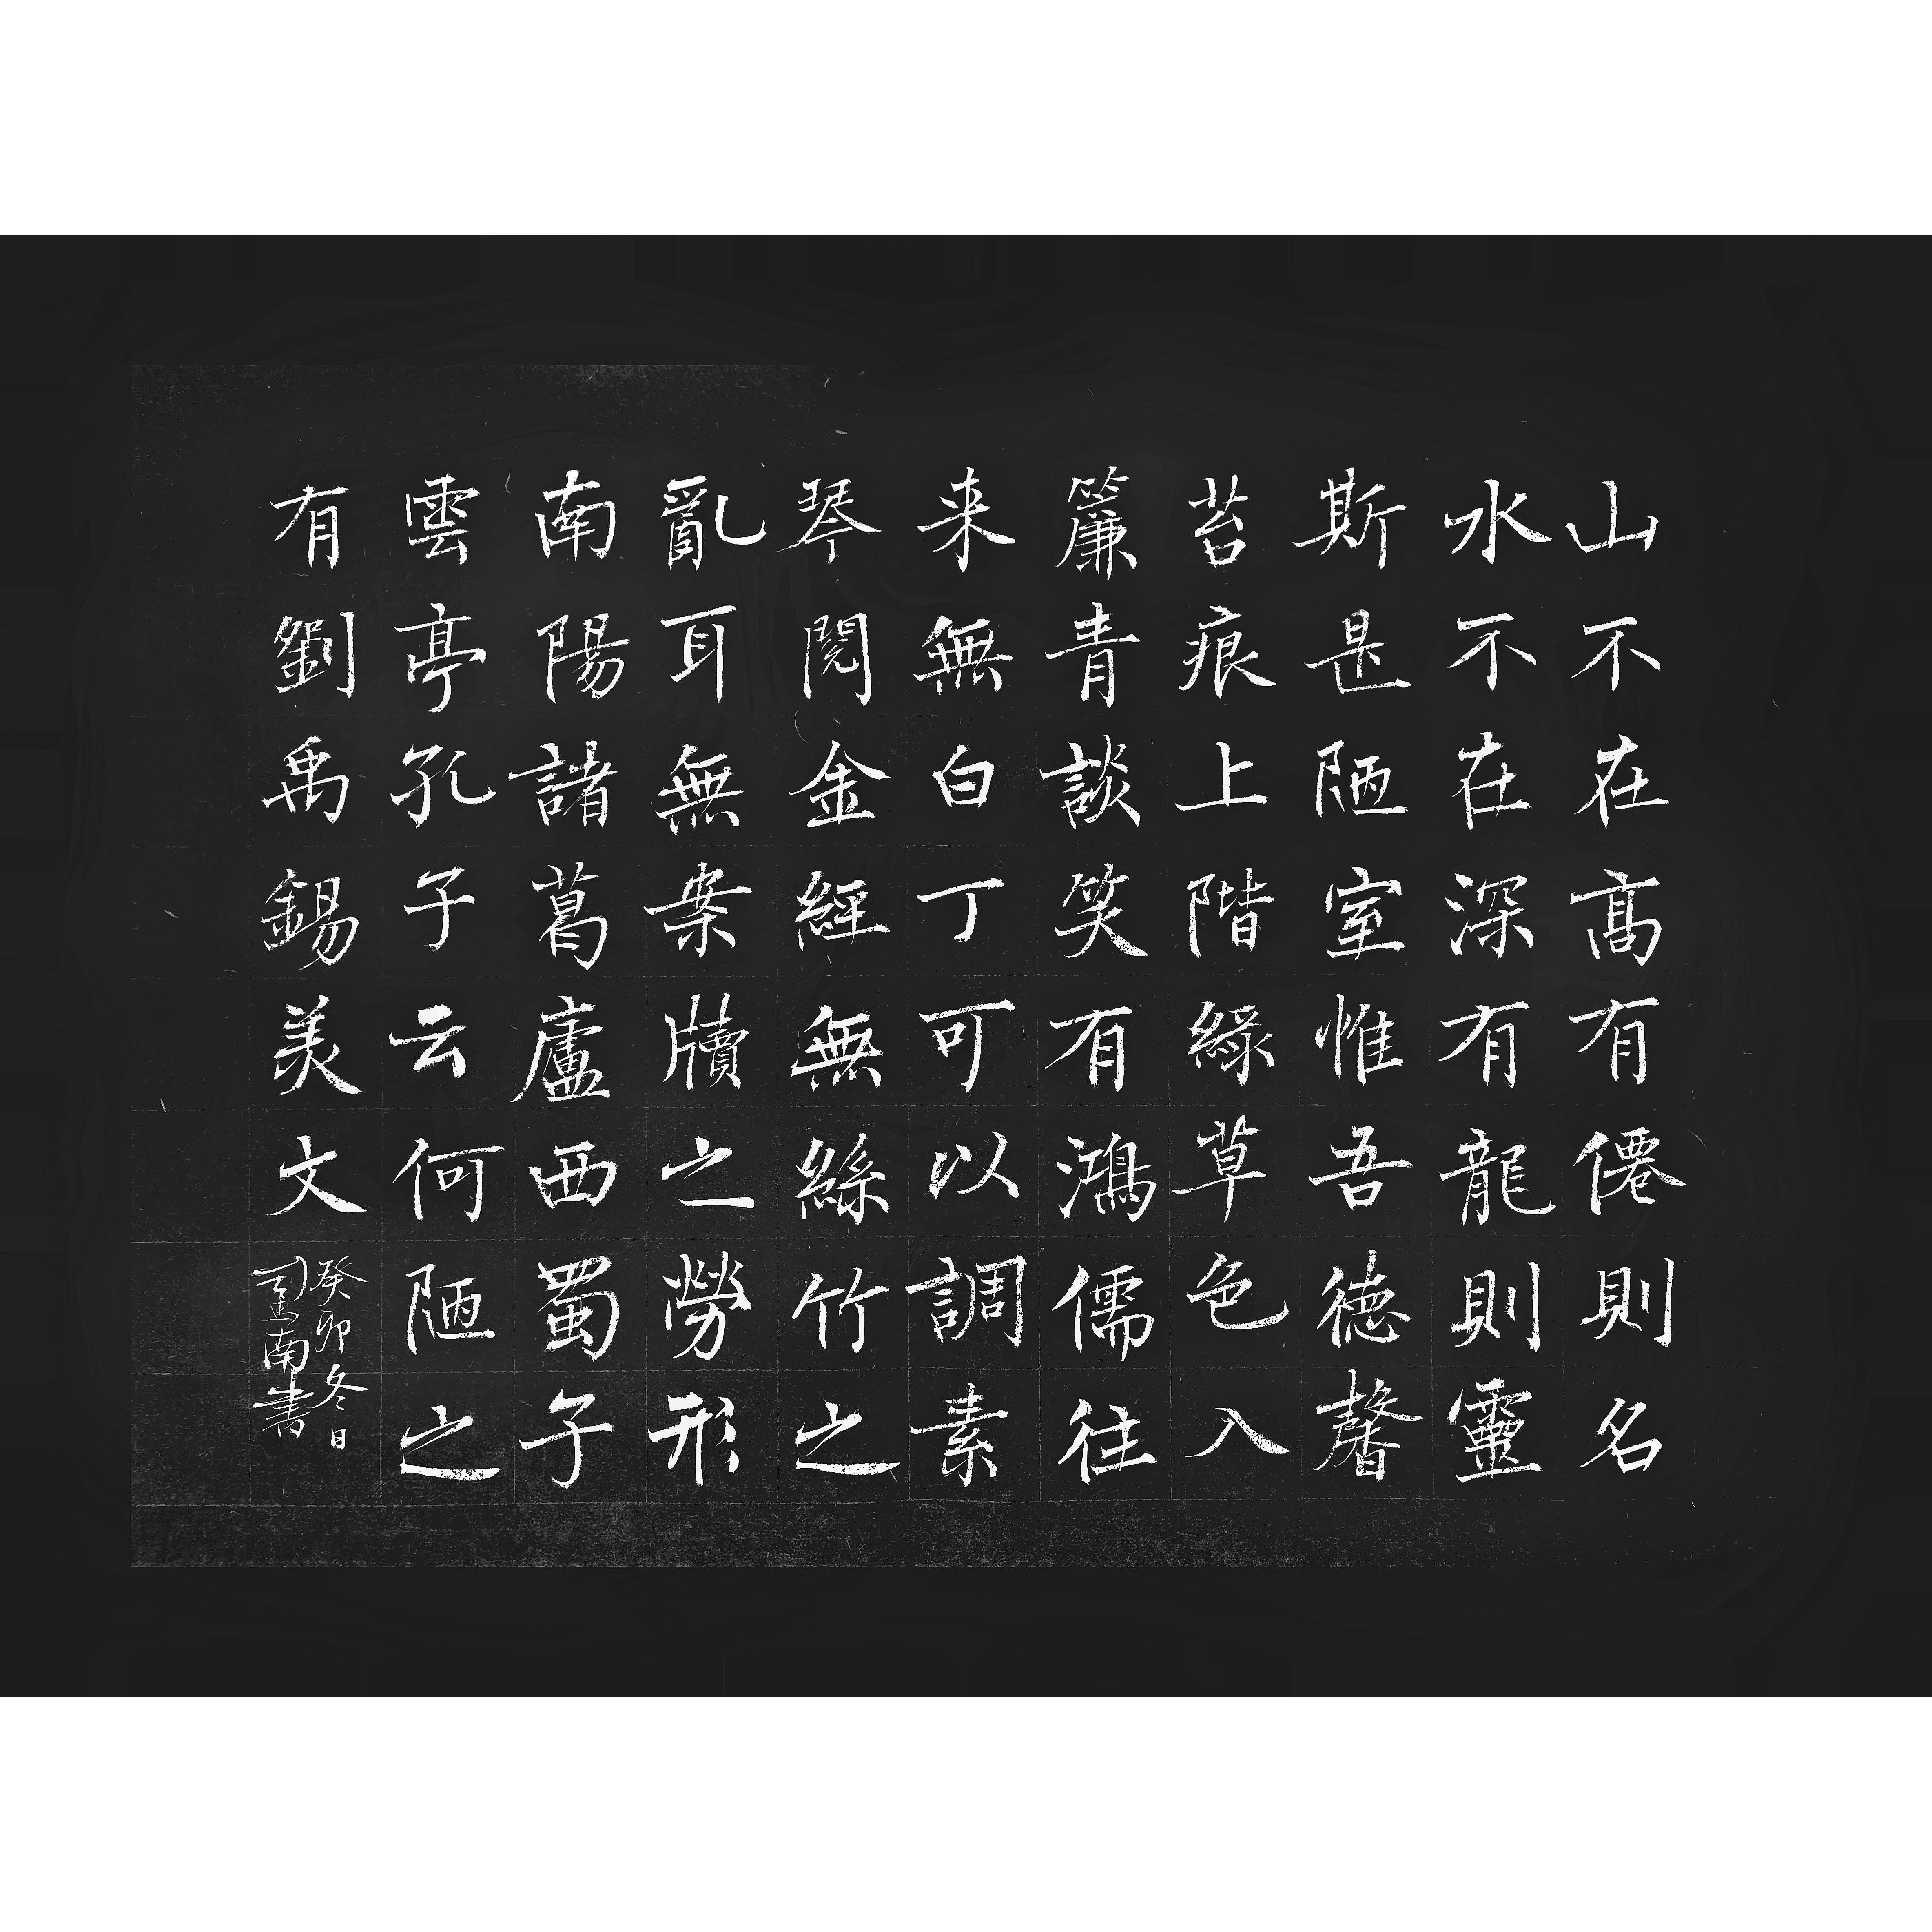 山不在髙有僊則名
水不在深有龍則靈
斯是陋室惟吾徳馨
苔痕上階綠草色入
簾青談笑有鴻儒往
来無白丁可以調素
琴閱金經無絲竹之
亂耳無案牘之勞形
南陽諸葛廬西蜀子
雲亭孔子云何陋之
有劉禹錫美文
癸卯冬日
南書